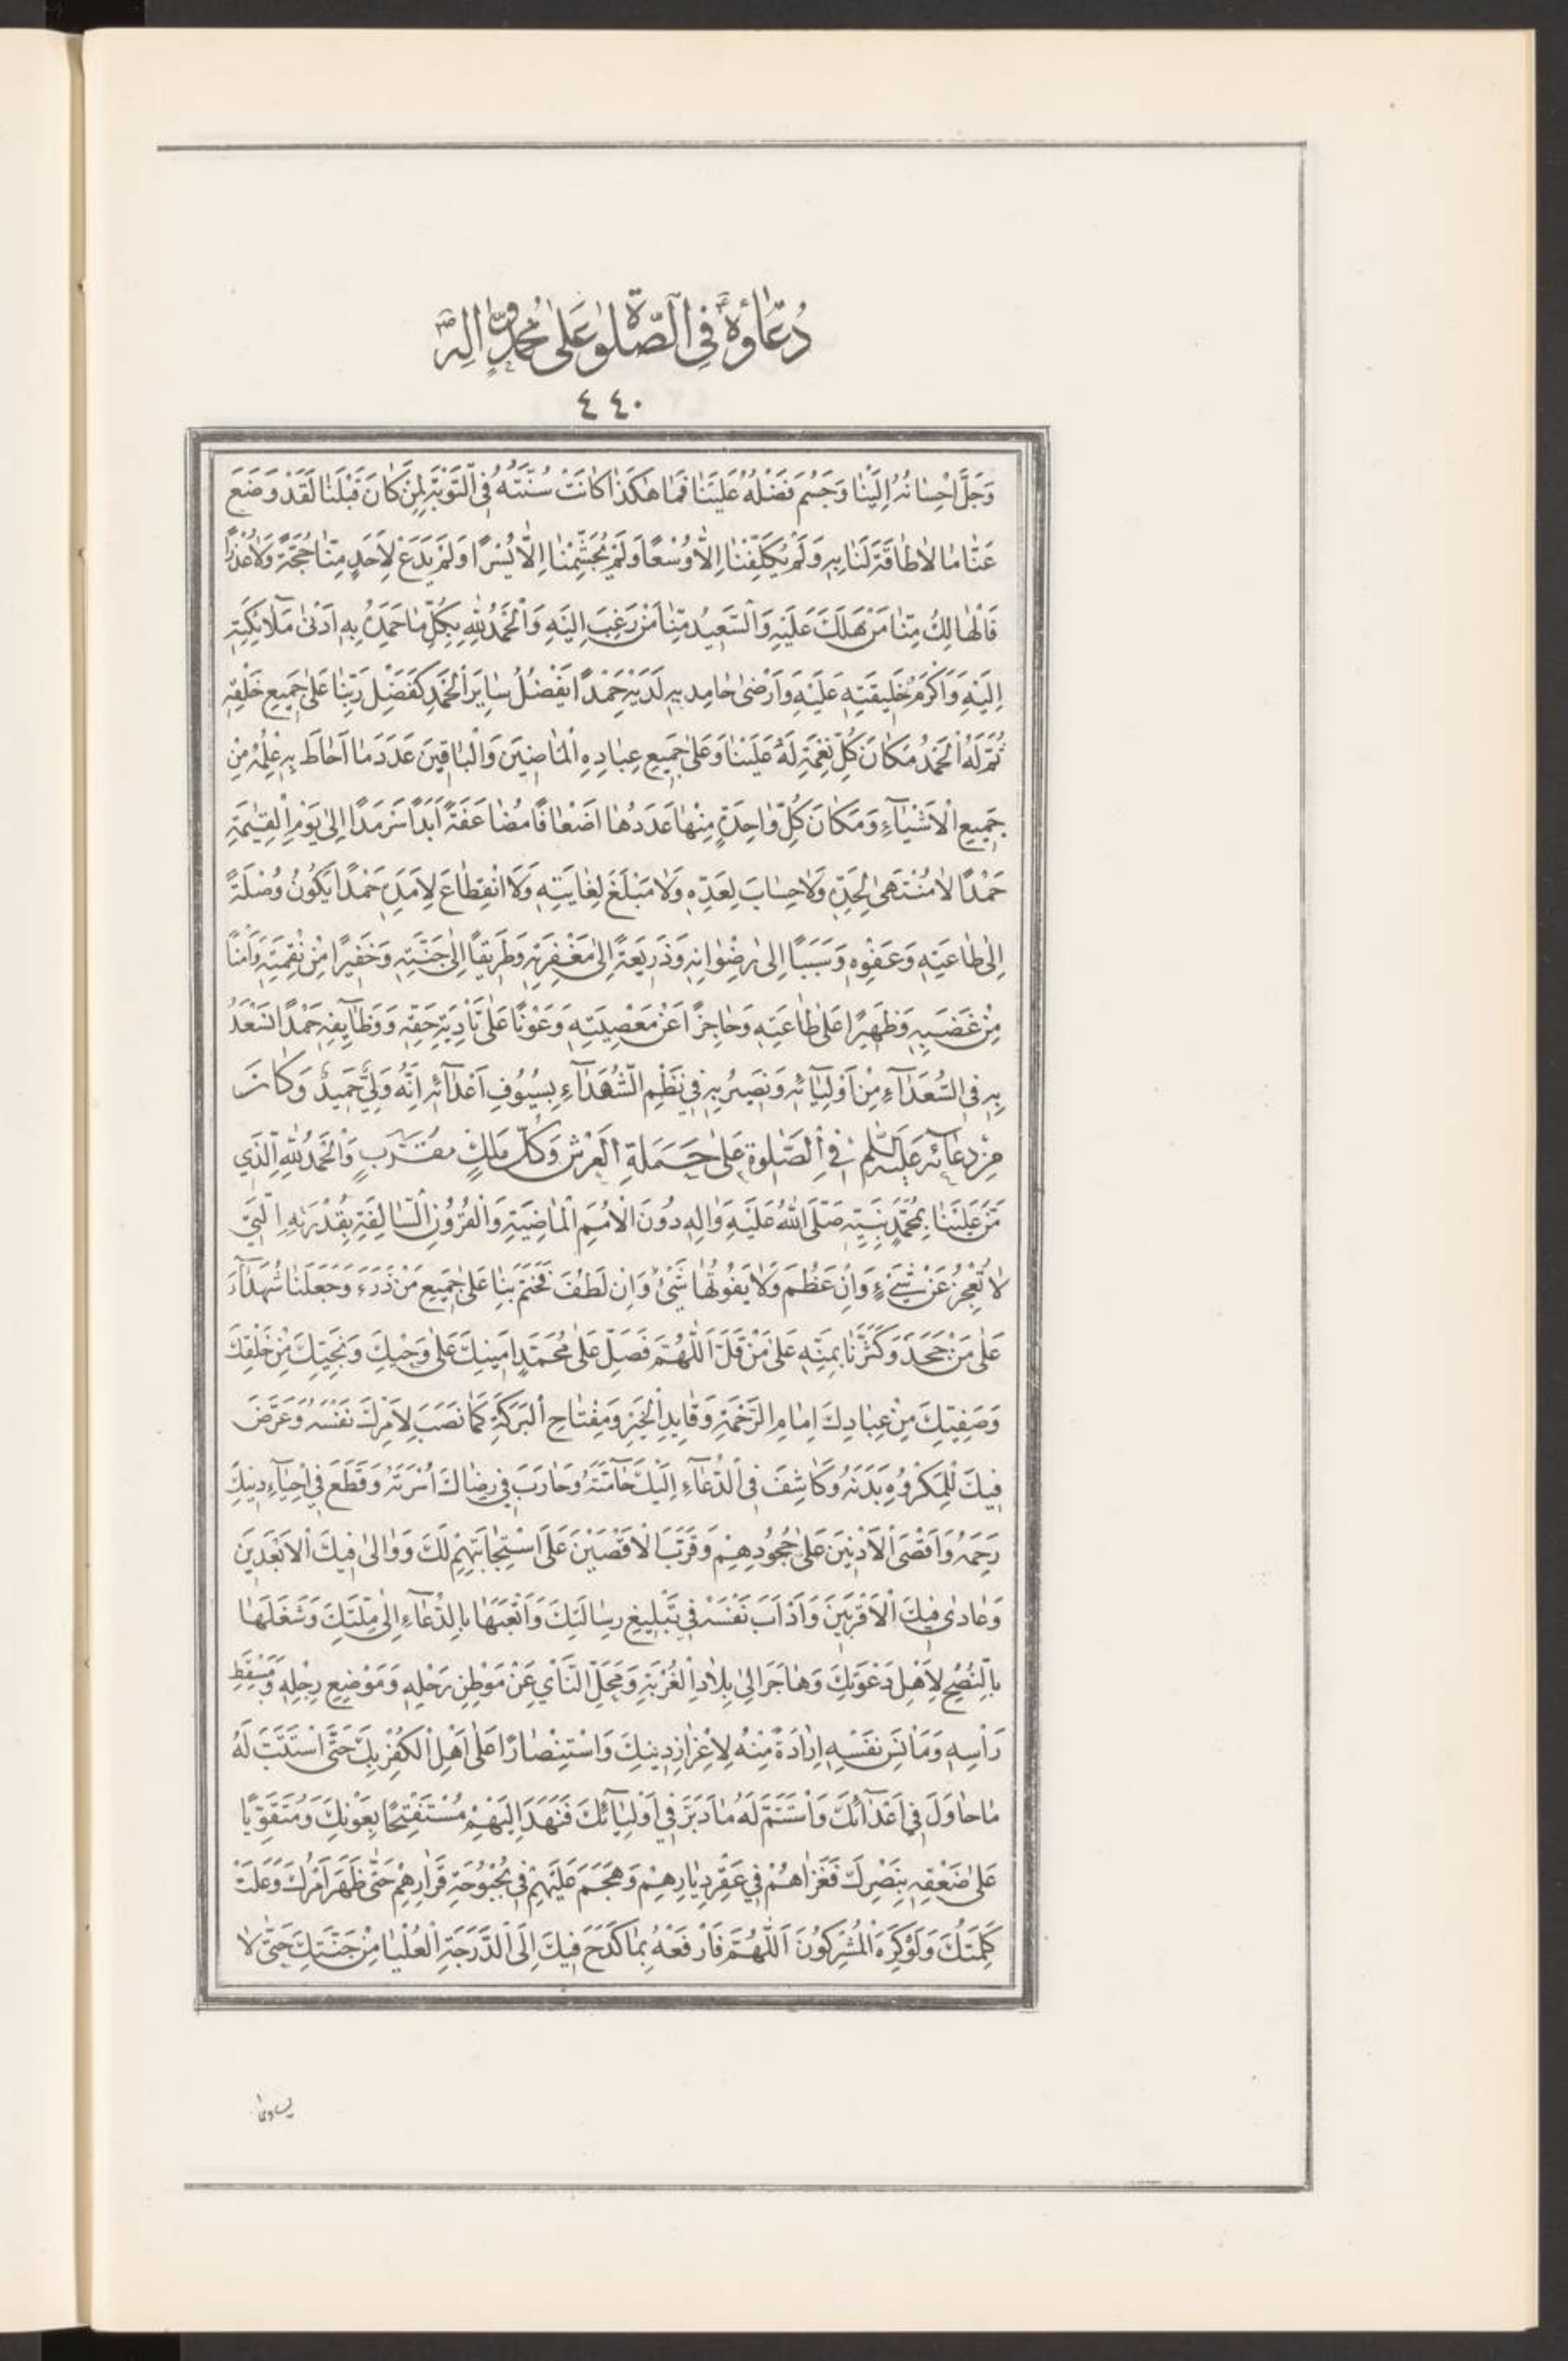 دُعَاؤُهُ فِي الصَّلٰوةِ عَلىٰ مُحَمَّدٍ وَاٰلِهِ
٤٤٠
وَجَلَّ اِحْسٰانُهُ اِلَيْنٰا وَجَسُمَ فَضْلُهُ عَلَيْنٰا فَمٰا هٰكَذٰا كٰانَتْ سُنَّتُهُ فِى التَّوْبَةِ لِمَنْ كٰانَ قَبْلَنٰا لَقَدْ وَضَعَ
عَنّٰا مٰا لاٰ طٰاقَةَ لَنٰا بِهِ وَلَمْ يُكَلِّفْنٰا اِلاّٰ وُسْعًا وَلَمْ يُجَشِّمْنٰا اِلاّٰ يُسْرًا وَلَمْ يَدَعْ لِاَحَدٍ مِنّٰا حُجَّةً وَلاٰ عُذْرًا
فَالْهٰالِكُ مِنّٰا مَنْ هَلَكَ عَلَيْهِ وَالسَّعِيدُ مِنّٰا مَنْ رَغِبَ اِلَيْهِ وَالْحَمْدُ لِلّٰهِ بِكُلِّ مٰا حَمِدَهُ بِهِ اَدْنىٰ مَلآئِكَتِهِ
اِلَيْهِ وَاَكْرَمُ خَلِيقَتِهِ عَلَيْهِ وَاَرْضىٰ حٰامِدِيهِ لَدَيْهِ حَمْدًا يَفْضُلُ سٰايِرَ الْحَمْدِ كَفَضْلِ رَبِّنٰا عَلىٰ جَمِيعِ خَلْقِهِ
ثُمَّ لَهُ الْحَمْدُ مَكٰانَ كُلِّ نِعْمَةٍ لَهُ عَلَيْنٰا وَعَلىٰ جَمِيعِ عِبٰادِهِ الْمٰاضِينَ وَالْبٰاقِينَ عَدَدَ مٰا اَحٰاطَ بِهِ عِلْمُهُ مِنْ
جَمِيعِ الْاَشْيٰآءِ وَمَكٰانَ كُلِّ وٰاحِدَةٍ مِنْهٰا عَدَدُهٰا اَضْعٰافًا مُضٰاعَفَةً اَبَدًا سَرْمَدًا اِلىٰ يَوْمِ الْقِيٰمَةِ
حَمْدًا لاٰ مُنْتَهىٰ لِحَدِّهِ وَلاٰ حِسٰابَ لِعَدِّهِ وَلاٰ مَبْلَغَ لِغٰايَتِهِ وَلاَ انْقِطٰاعَ لِاَمَدِهِ حَمْدًا يَكُونُ وُصْلَةً
اِلىٰ طٰاعَتِهِ وَعَفْوِهِ وَسَبَبًا اِلىٰ رِضْوٰانِهِ وَذَرِيعَةً اِلىٰ مَغْفِرَتِهِ وَطَرِيقًا اِلىٰ جَنَّتِهِ وَخَفِيرًا مِنْ نِقْمَتِهِ وَاَمْنًا
مِنْ غَضَبِهِ وَظَهِيرًا عَلىٰ طٰاعَتِهِ وَحٰاجِزًا عَنْ مَعْصِيَتِهِ وَعَوْنًا عَلىٰ تَأْدِيَةِ حَقِّهِ وَوَظٰآيِفِهِ حَمْدًا نَسْعَدُ
بِهِ فِى السُّعَدٰآءِ مِنْ اَوْلِيٰآئِهِ وَنَصِيرُ بِهِ فِى نَظْمِ الشُّهَدٰآءِ بِسُيُوفِ اَعْدٰآئِهِ اِنَّهُ وَلِيٌّ حَمِيدٌ وَكٰانَ
مِنْ دُعٰآئِهِ عَلَيْهِ السَّلٰمُ فِي الصَّلٰوةِ عَلىٰ حَمَلَةِ الْعَرْشِ وَكُلِّ مَلَكٍ مُقَرَّبٍ وَالْحَمْدُ لِلّٰهِ الَّذِي
مَنَّ عَلَيْنٰا بِمُحَمَّدٍ نَبِيِّهِ صَلَّى اللّٰهُ عَلَيْهِ وَاٰلِهِ دُونَ الْاُمَمِ الْمٰاضِيَةِ وَالْقُرُونِ السّٰالِفَةِ بِقُدْرَتِهِ الَّتِي
لاٰ تَعْجِزُ عَنْ شَيْءٍ وَاِنْ عَظُمَ وَلاٰ يَفُوتُهٰا شَيْءٌ وَاِنْ لَطُفَ فَخَتَمَ بِنٰا عَلىٰ جَمِيعِ مَنْ ذَرَءَ وَجَعَلَنٰا شُهَدٰآءَ
عَلىٰ مَنْ جَحَدَ وَكَثَّرَنٰا بِمَنِّهِ عَلىٰ مَنْ قَلَّ اَللّٰهُمَّ فَصَلِّ عَلىٰ مُحَمَّدٍ اَمِينِكَ عَلىٰ وَحْيِكَ وَنَجِيبِكَ مِنْ خَلْقِكَ
وَصَفِيِّكَ مِنْ عِبٰادِكَ اِمٰامِ الرَّحْمَةِ وَقٰايِدِ الْخَيْرِ وَمِفْتٰاحِ الْبَرَكَةِ كَمٰا نَصَبَ لِاَمْرِكَ نَفْسَهُ وَعَرَّضَ
فِيكَ لِلْمَكْرُوهِ بَدَنَهُ وَكٰاشَفَ فِى الدُّعٰآءِ اِلَيْكَ حٰآمَّتَهُ وَحٰارَبَ فِي رِضٰاكَ اُسْرَتَهُ وَقَطَعَ فِي اِحْيٰآءِ دِينِكَ
رَحِمَهُ وَاَقْصَى الْاَدْنِينَ عَلىٰ جُحُودِهِمْ وَقَرَّبَ الْاَقْصَيْنَ عَلَى اسْتِجٰابَتِهِمْ لَكَ وَوٰالىٰ فِيكَ الْاَبْعَدِينَ
وَعٰادىٰ فِيكَ الْاَقْرَبِينَ وَاَدْاَبَ نَفْسَهُ فِي تَبْلِيغِ رِسٰالَتِكَ وَاَتْعَبَهٰا بِالدُّعٰآءِ اِلىٰ مِلَّتِكَ وَشَغَلَهٰا
بِالنُّصْحِ لِاَهْلِ دَعْوَتِكَ وَهٰاجَرَ اِلىٰ بِلاٰدِ الْغُرْبَةِ وَمَحَلِّ النَّأْيِ عَنْ مَوْطِنِ رَحْلِهِ وَمَوْضِعِ رِجْلِهِ وَمَسْقَطِ
رَأْسِهِ وَمَأْنَسِ نَفْسِهِ اِرٰادَةً مِنْهُ لِاِعْزٰازِ دِينِكَ وَاسْتِنْصٰارًا عَلىٰ اَهْلِ الْكُفْرِ بِكَ حَتَّى اسْتَتَبَّ لَهُ
مٰا حٰاوَلَ فِي اَعْدٰآئِكَ وَاسْتَتَمَّ لَهُ مٰا دَبَّرَ فِي اَوْلِيٰآئِكَ فَنَهَدَ اِلَيْهِمْ مُسْتَفْتِحًا بِعَوْنِكَ وَمُتَقَوِّيًا
عَلىٰ ضَعْفِهِ بِنَصْرِكَ فَغَزٰاهُمْ فِي عُقْرِ دِيٰارِهِمْ وَهَجَمَ عَلَيْهِمْ فِي بُحْبُوحَةِ قَرٰارِهِمْ حَتّٰى ظَهَرَ اَمْرُكَ وَعَلَتْ
كَلِمَتُكَ وَلَوْ كَرِهَ الْمُشْرِكُونَ اَللّٰهُمَّ فَارْفَعْهُ بِمٰا كَدَحَ فِيكَ اِلَى الدَّرَجَةِ الْعُلْيٰا مِنْ جَنَّتِكَ حَتّٰى لاٰ
يساوى